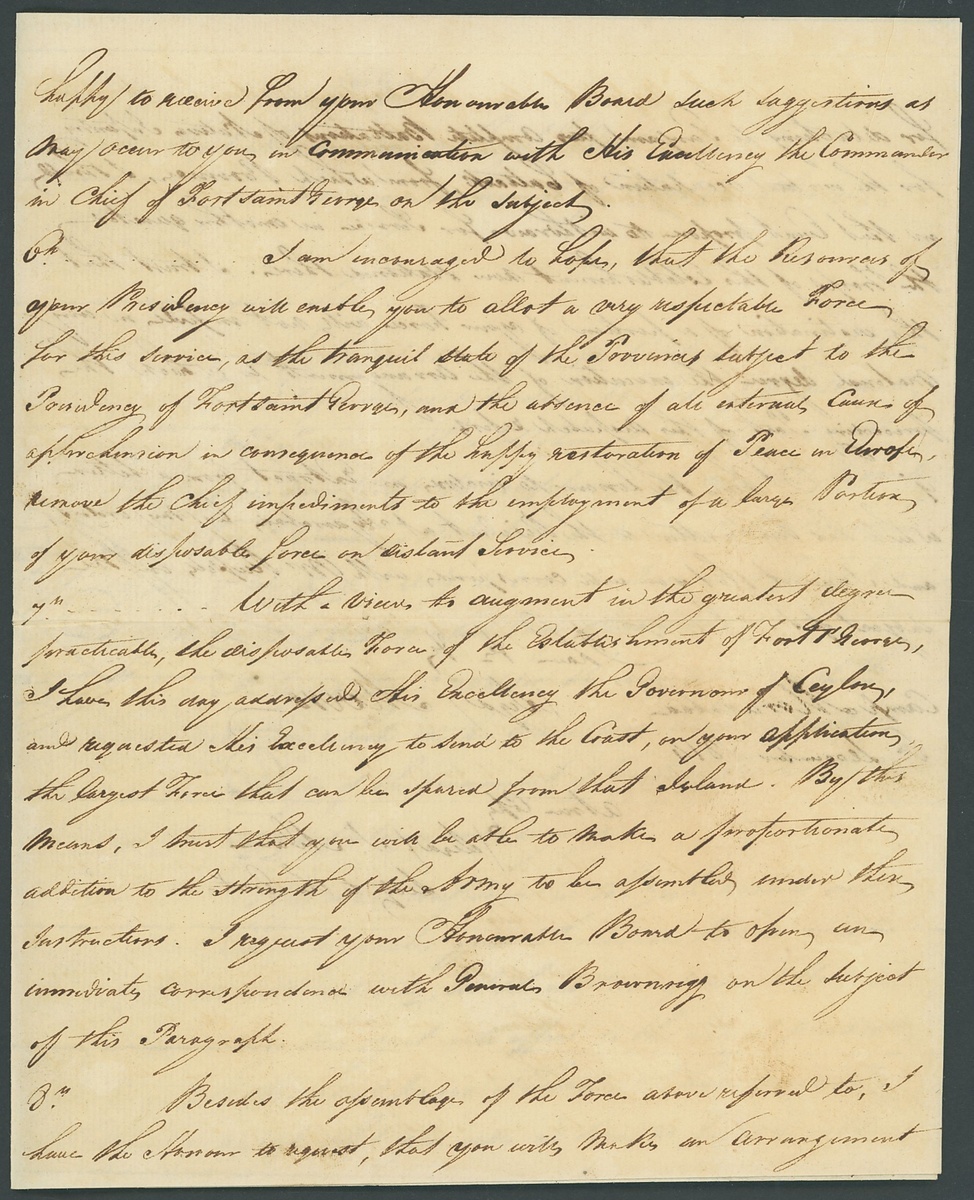 happy to receive from your Honourable Board such suggestions as
may occur to you, in Communication with His Excellency the Commander
in Chief of Fort saint George, on the subject.
6th. I am encouraged to hope, that the Resources of
your Presidency will enable you to allot a very respectable Force
for this service, as the tranquil state of the Provinces subject to the
Presidency of Fort saint George, and the absence of all external Cause of
apprehension in consequence of the happy restoration of Peace in Europe,
remove the Chief impediments to the employment of a large Portion
of your disposable force on distant Service.
7th. With a View to augment in the greatest degree
practicable, the disposable Force of the Establishment of Fort St George,
I have this day addressed His Excellency the Governour of Ceylon,
and requested His Excellency to send to the Coast, on your application,
the largest Force that can be spared from that Island. By this
means, I trust that you will be able to make a proportionate
addition to the strength of the Army to be assembled under these
Instructions. I request your Honourable Board to open an
immediate correspondence with General Brownrigg on the subject
of this Paragraph.
8th. Besides the assemblage of the Force above referred to, I
have the Honour to request, that you will make an arrangement